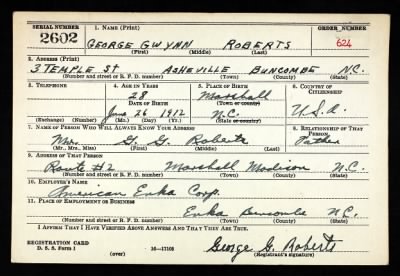 SERIAL NUMBER 1. NAME (Print) ORDER NUMBER
2602 GEORGE GWYNN ROBERTS 624
(First) (Middle) (Last)
2. ADDRESS (Print)
3 TEMPLE ST ASHEVILLE BUNCOMBE N.C.
(Number and street or R. F. D. number) (Town) (County) (State)
3. TELEPHONE 4. AGE IN YEARS 5. PLACE OF BIRTH 6. COUNTRY OF CITIZENSHIP
28 Marshall
DATE OF BIRTH (Town or county)
June 26 1912 N.C. U.S.A.
(Exchange) (Number) (Mo.) (Day) (Yr.) (State or country)
7. NAME OF PERSON WHO WILL ALWAYS KNOW YOUR ADDRESS 8. RELATIONSHIP OF THAT PERSON
Mr. G. G. Roberts Father
(Mr., Mrs., Miss) (First) (Middle) (Last)
9. ADDRESS OF THAT PERSON
Route #2 Marshall Madison N.C.
(Number and street or R. F. D. number) (Town) (County) (State)
10. EMPLOYER'S NAME
American Enka Corp.
11. PLACE OF EMPLOYMENT OR BUSINESS
Enka Buncombe N.C.
(Number and street or R. F. D. number) (Town) (County) (State)
I AFFIRM THAT I HAVE VERIFIED ABOVE ANSWERS AND THAT THEY ARE TRUE.
REGISTRATION CARD George G. Roberts
D. S. S. Form 1 16—17105 (Registrant's signature)
(over)